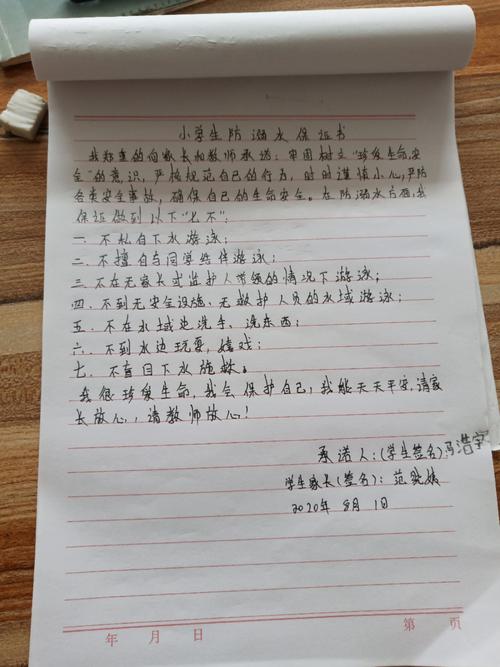 小学生防溺水保证书
我郑重的向家长和教师承诺：牢固树立"珍爱生命,安
全"的意识，严格规范自己的行为，时时谨慎小心，严防
各类安全事故，确保自己的生命安全。在防溺水方面,我
保证做到以下"七不"：
一 不私自下水游泳；
二．不擅自与同学结伴游泳；
三．不在无家长或监护人带领的情况下游泳；
四．不到无安全设施、无救护人员的水域游泳；
五．不在水域边洗手、洗东西；
六．不到水边玩耍，嬉戏；
七．不盲目下水施救。
我很珍爱生命，我会保护自己，我能天天平安,请家
长放心，请教师放心！
承诺人：(学生签名)冯浩宇
学生家长(签名)：范
2020年 8月 1日
年 月 日 第 页